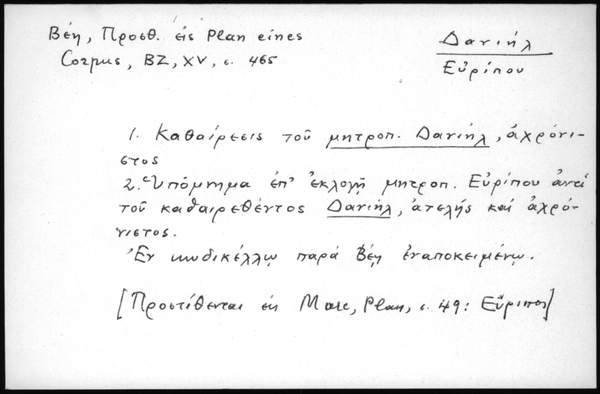 Βέη, Προσθ. εἰς Plan eines
Corpus, BZ, XV, σ. 465
Δανιήλ
Εὐρίπου
1. Καθαίρεσις τοῦ μητροπ. Δανιήλ, ἀχρόνι-
στος
2. Ὑπόμνημα ἐπ' ἐκλογῇ μητροπ. Εὐρίπου ἀντί
τοῦ καθαιρεθέντος Δανιήλ, ἀτελής καί ἀχρό-
νιστος.
Ἐν κωδικέλλῳ παρά Βέῃ ἐναποκειμένῳ.
[Προστίθενται εἰς Marc, Plan, σ. 49: Εὔριπος]